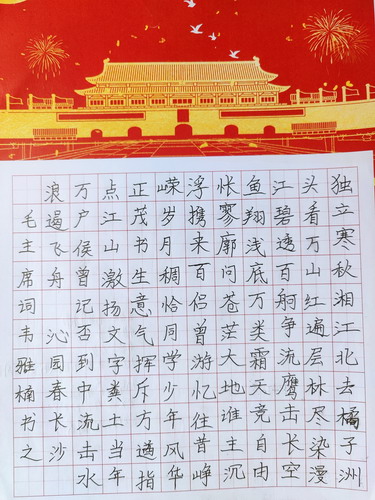 独立寒秋湘江北去橘子洲
头看万山红遍层林尽染漫
江碧透百舸争流鹰击长空
鱼翔浅底万类霜天竞自由
怅寥廓问苍茫大地谁主沉
浮携来百侣曾游忆往昔峥
嵘岁月稠恰同学少年风华
正茂书生意气挥斥方遒指
点江山激扬文字粪土当年
万户侯曾记否到中流击水
浪遏飞舟 沁园春长沙
毛主席词韦雅楠书之